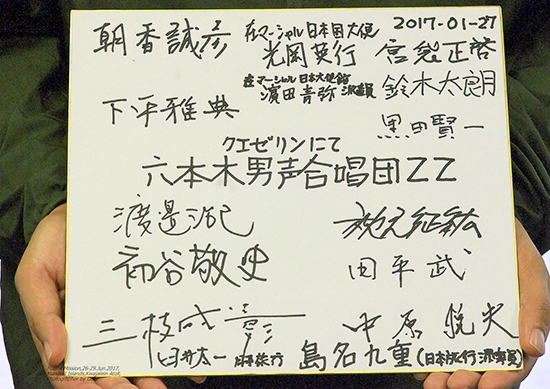 朝香誠彦
在マーシャル日本国大使
光岡英行
2017-01-27
宮袋正啓
在マーシャル日本大使館
濱田青弥 派遣員
鈴木太朗
下平雅典
黒田賢一
クエゼリンにて
六本木男声合唱団ZZ
渡邊治己
初谷敬史
田平武
三枝成彰
中原悦夫
臼井太一
日本旅行
島名九重(日本旅行添乗員)
Mission, 26-29 Jan. 2017,
Islands, Kwajalein Atoll,
Photographer by